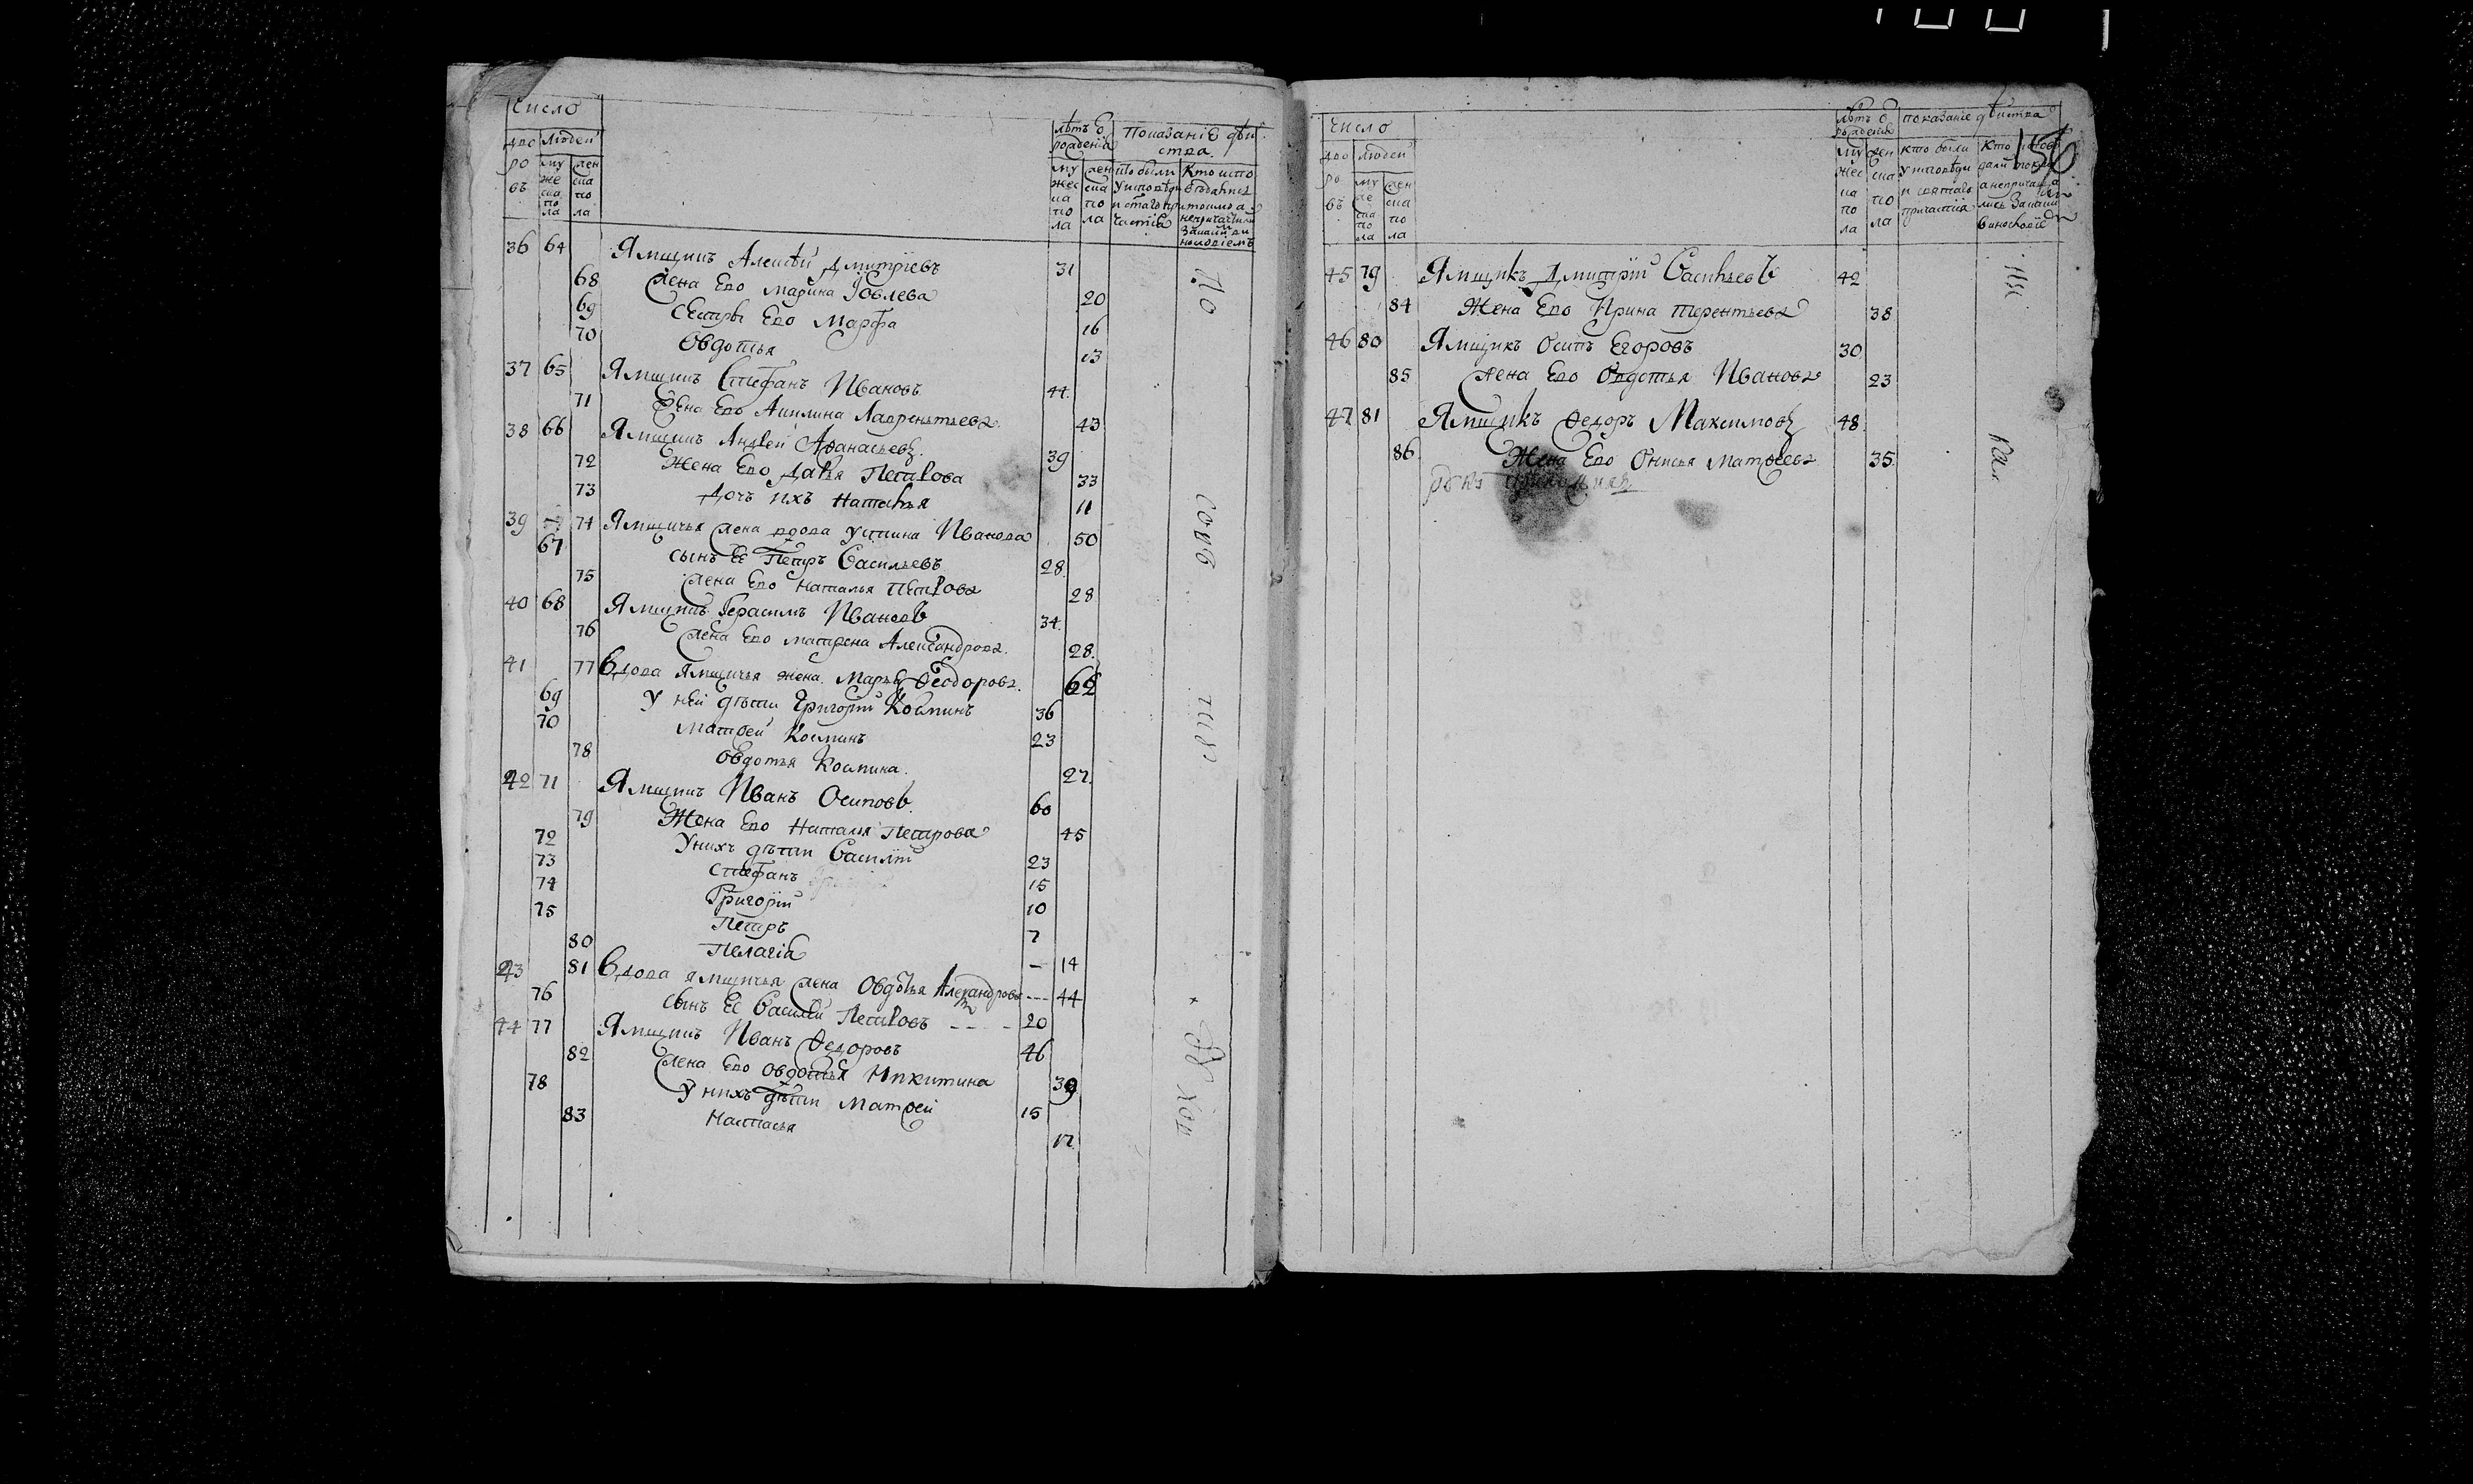 число
дво ро въ
людей
му же ска по ла
жен ска по ла
лѣтъ о рожденїя
му жес ка по ла
жен ска по ла
Показанїе дѣй
ства
36 64 Ямщикъ Алексѣй Дмитрїевъ 31
68 Жена Его Марина Іовлева 20
69 Сестры Его Марфа 16
70 Овдотья 13
37 65 Ямщикъ Стефанъ Ивановъ 44
71 Жена Его Акилина Лаврентьева 43
38 66 Ямщикъ Андрей Афанасьевъ 39
72 Жена Его Дарья Петрова 33
73 Дочь ихъ Наталья 11
39 74 Ямщичья жена вдова Устина Иванова 50
67 сынъ Ее Петръ Васильевъ 28
75 Жена Его Наталья Петрова 28
40 68 Ямщикъ Герасимъ Ивановъ 34
76 Жена Его Матрена Александрова 28
41 77 Вдова Ямщичья жена Марья Ѳеодорова 62
69 У ней дѣти Григорїй Козминъ 36
70 Матвей Козминъ 23
78 Овдотья Козмина 27
42 71 Ямщикъ Иванъ Осиповъ 60
79 Жена Его Наталья Петрова 45
72 У нихъ дѣти Василїй 23
73 Стефанъ 15
74 Григорїй 10
75 Петръ 7
80 Пелагїя - 14
43 81 Вдова ямщичья жена Овдотья Александрова --- 44
76 Сынъ Ее Василей Петровъ --- 20
44 77 Ямщикъ Иванъ Ѳедоровъ 46
82 Жена Его Овдотья Никитина 39
78 У нихъ дѣти Матвей 15
83 Настасья 12
число
дво ро въ
людей
му же ска по ла
жен ска по ла
лѣтъ о рожденїя
му жес ка по ла
жен ска по ла
показанїе дѣйства
кто были
у исповѣди
и святаго
причастїя
156
45 79 Ямщикъ Дмитрїй Васильевъ 42
84 Жена Его Ирина Терентьева 38
46 80 Ямщикъ Осипъ Егоровъ 30
85 Жена Его Овдотья Иванова 23
47 81 Ямщикъ Ѳедоръ Максимовъ 48
86 Жена Его Онисья Матвеева 35